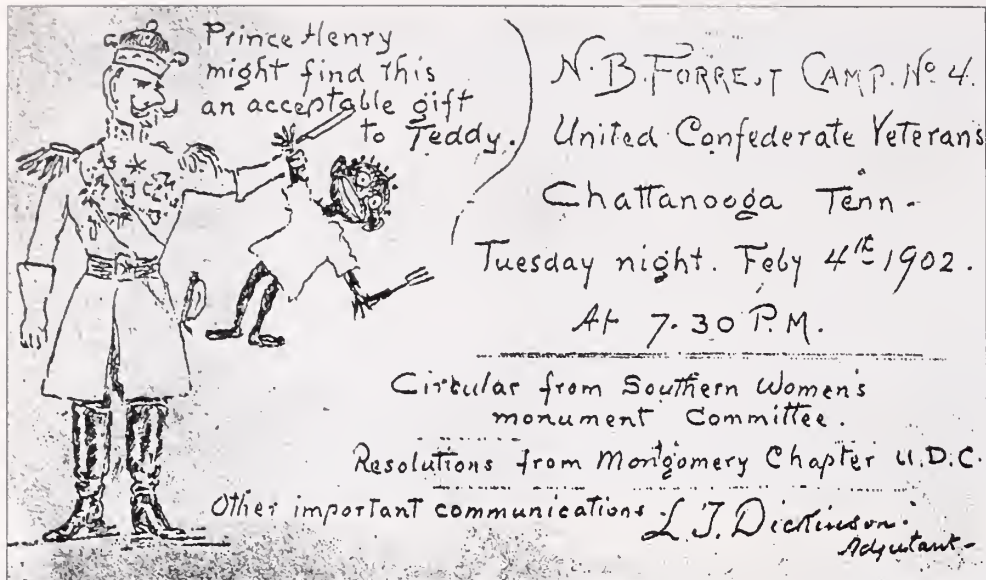 Prince Henry
might find this
an acceptable gift
to Teddy.
N. B. FORREST CAMP. No 4.
United Confederate Veterans
Chattanooga Tenn -
Tuesday night. Feby 4th 1902.
At 7.30 P.M.
Circular from Southern Women's
monument Committee.
Resolutions from Montgomery Chapter U.D.C.
Other important communications.
L. T. Dickinson.
Adjutant -